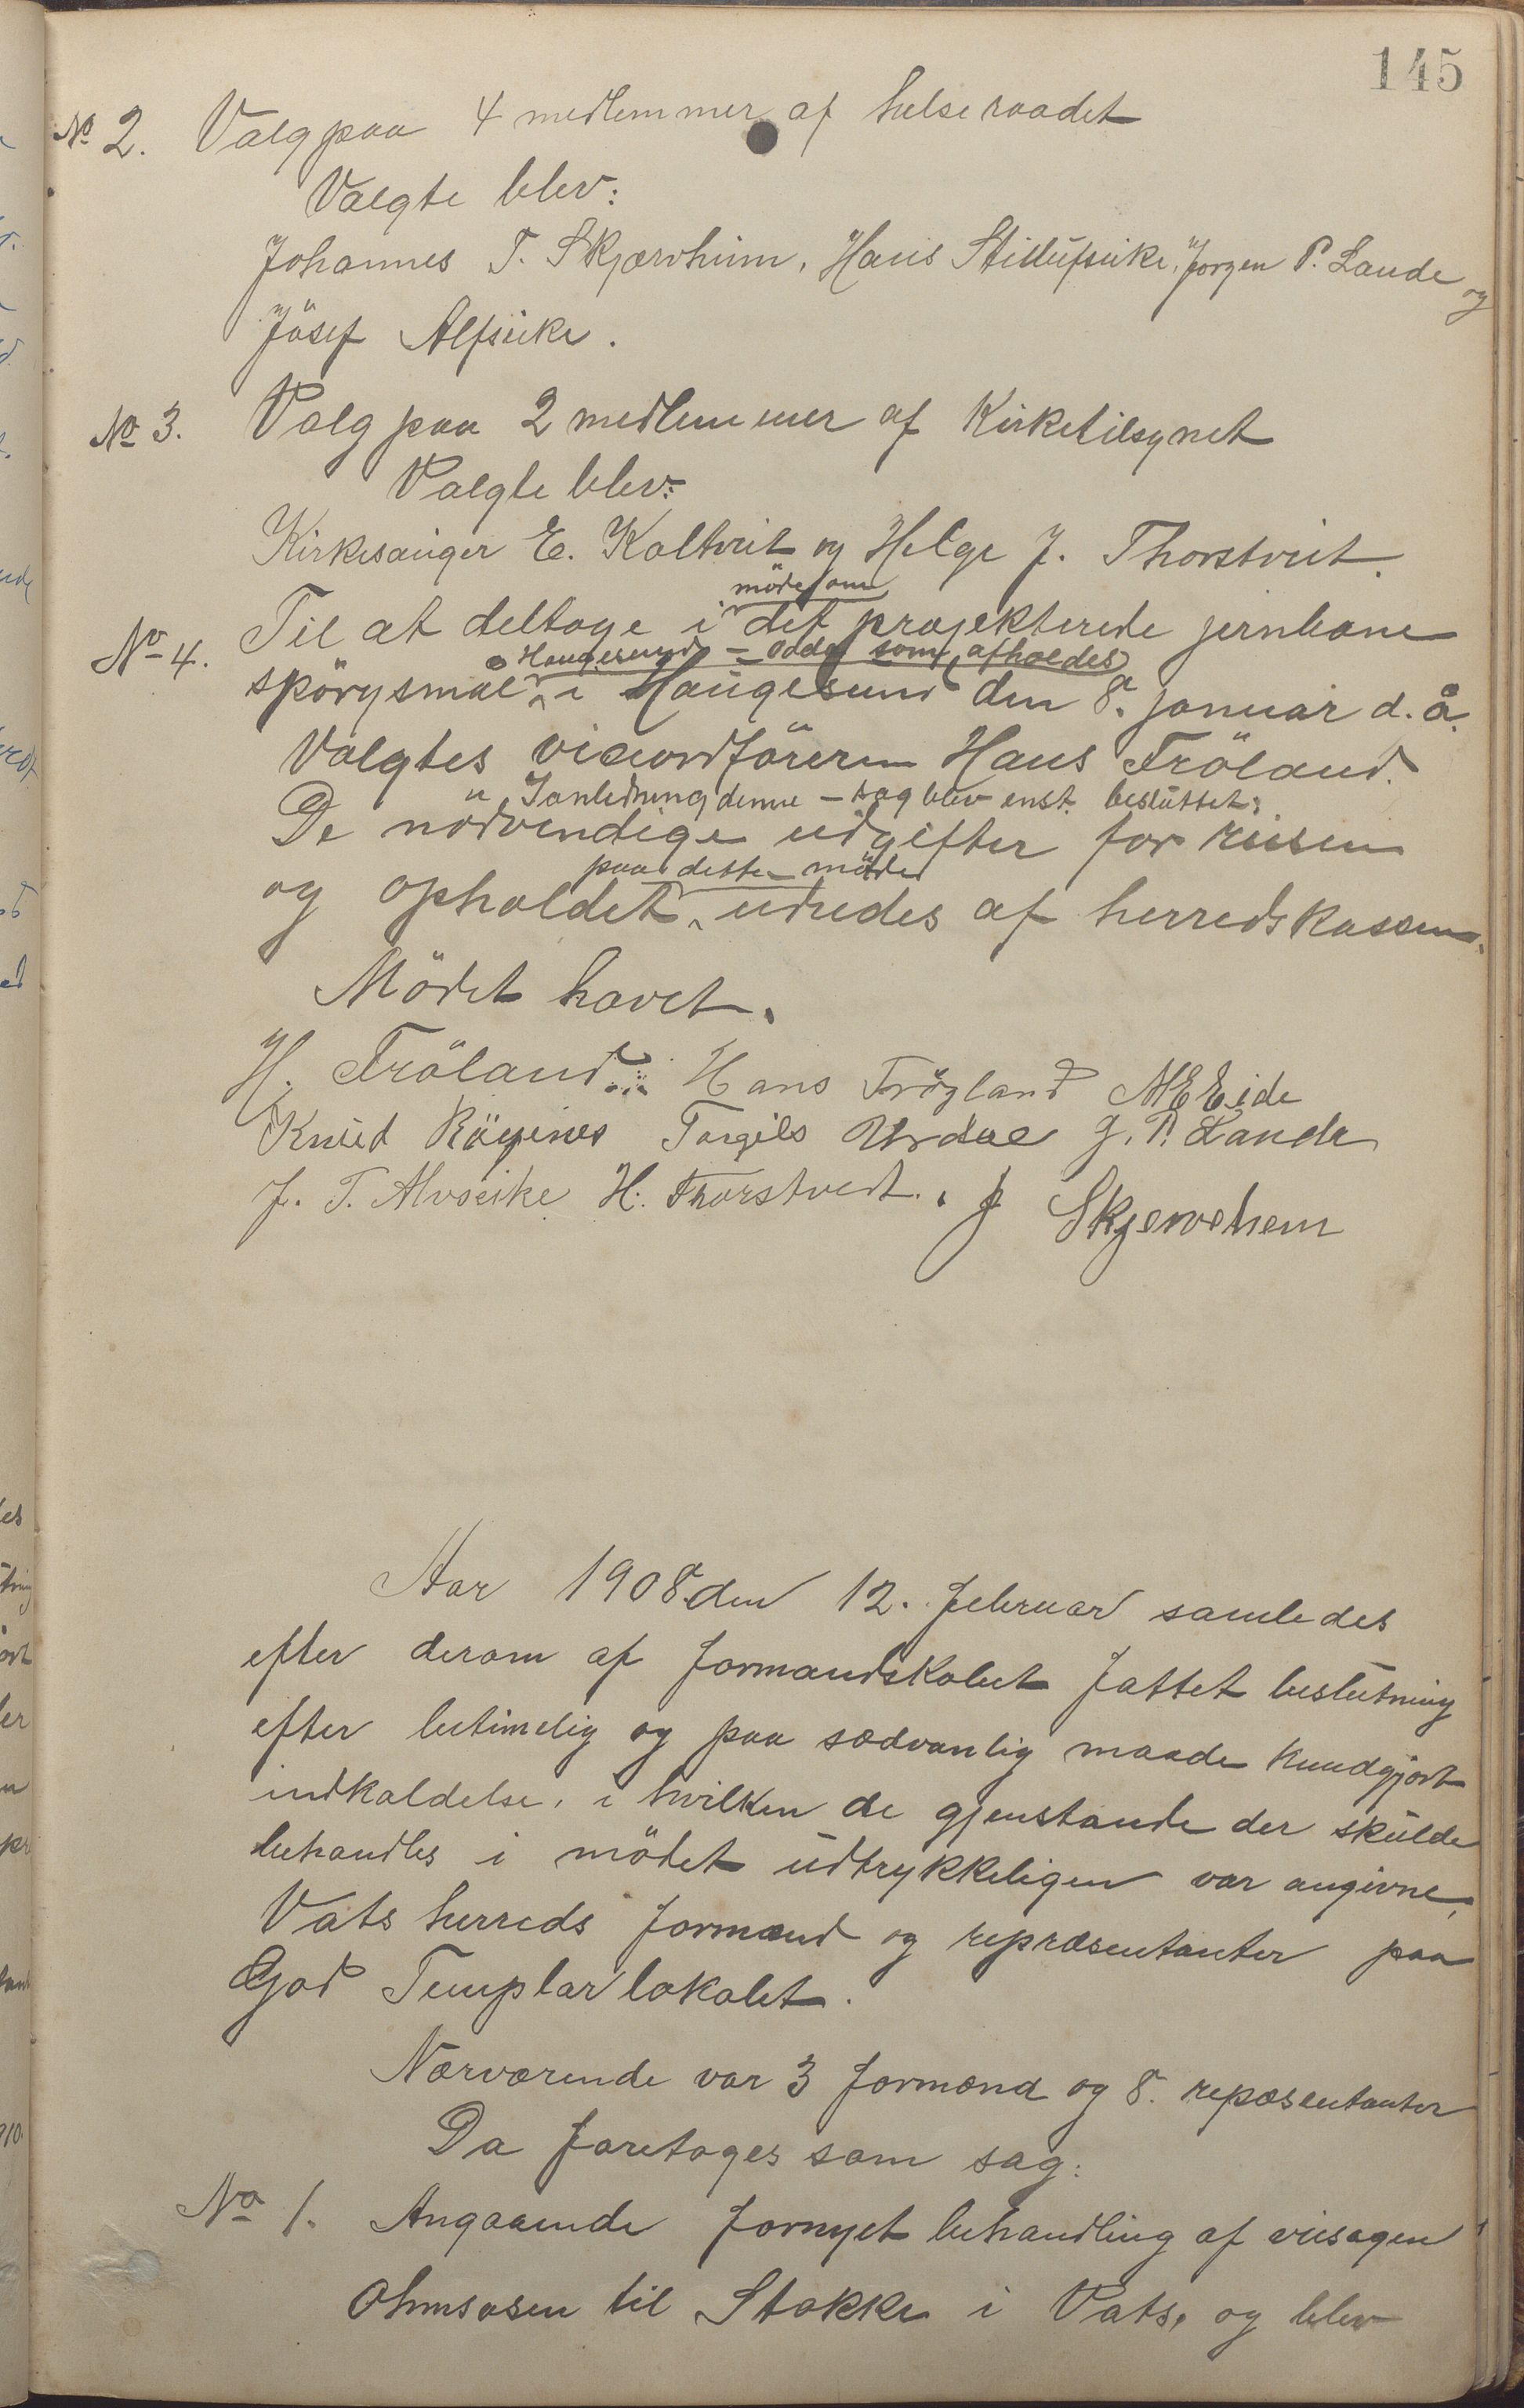 145
No 2. Valg paa 4 medlemmer af helseraadet
Valgte blev:
Johannes T. Skjærvheim, Hans Stillufseike, Jørgen P. Lande og
Jósef Alfseike.
No 3. Valg paa 2 medlemmer af Kirketilsynet
Valgte blev:
Kirkesanger E. Kaltveit og Helge J. Thorstveit.
møde om
No 4. Til at deltage i det projekterede jernbane
Haugesund - Odda som afholdes
spörgsmål i Haugesund den 8. januar d. å.
Valgtes viceordföreren Hans Fröland.
I anledning denne sag blev enst. besluttet:
De nødvendige udgifter for reisen
paa dette möde
og opholdet udredes af herredskassen.
Mödet hævet.
H. Fröland. Hans Frögland A E Eide
Knut Röyrnes Torgils Urdal J. P. Lande
J. T. Alvseike H. Thorstveit. J Skjervehem
Aar 1908 den 12. februar samledes
efter derom af formandskabet fattet beslutning
efter betimelig og paa sædvanlig maade kundgjort
indkaldelse, i hvilken de gjenstande der skulde
behandles i mödet udtrykkeligen var angivne,
Vats herreds formænd og repræsentanter paa
God Templar lokalet.
Nærværende var 3 formænd og 8. repæsentanter
Da foretages som sag:
No 1. Angaaende fornyet behandling af veisagen
Ohmsåsen til Stakke i Vats, og blev